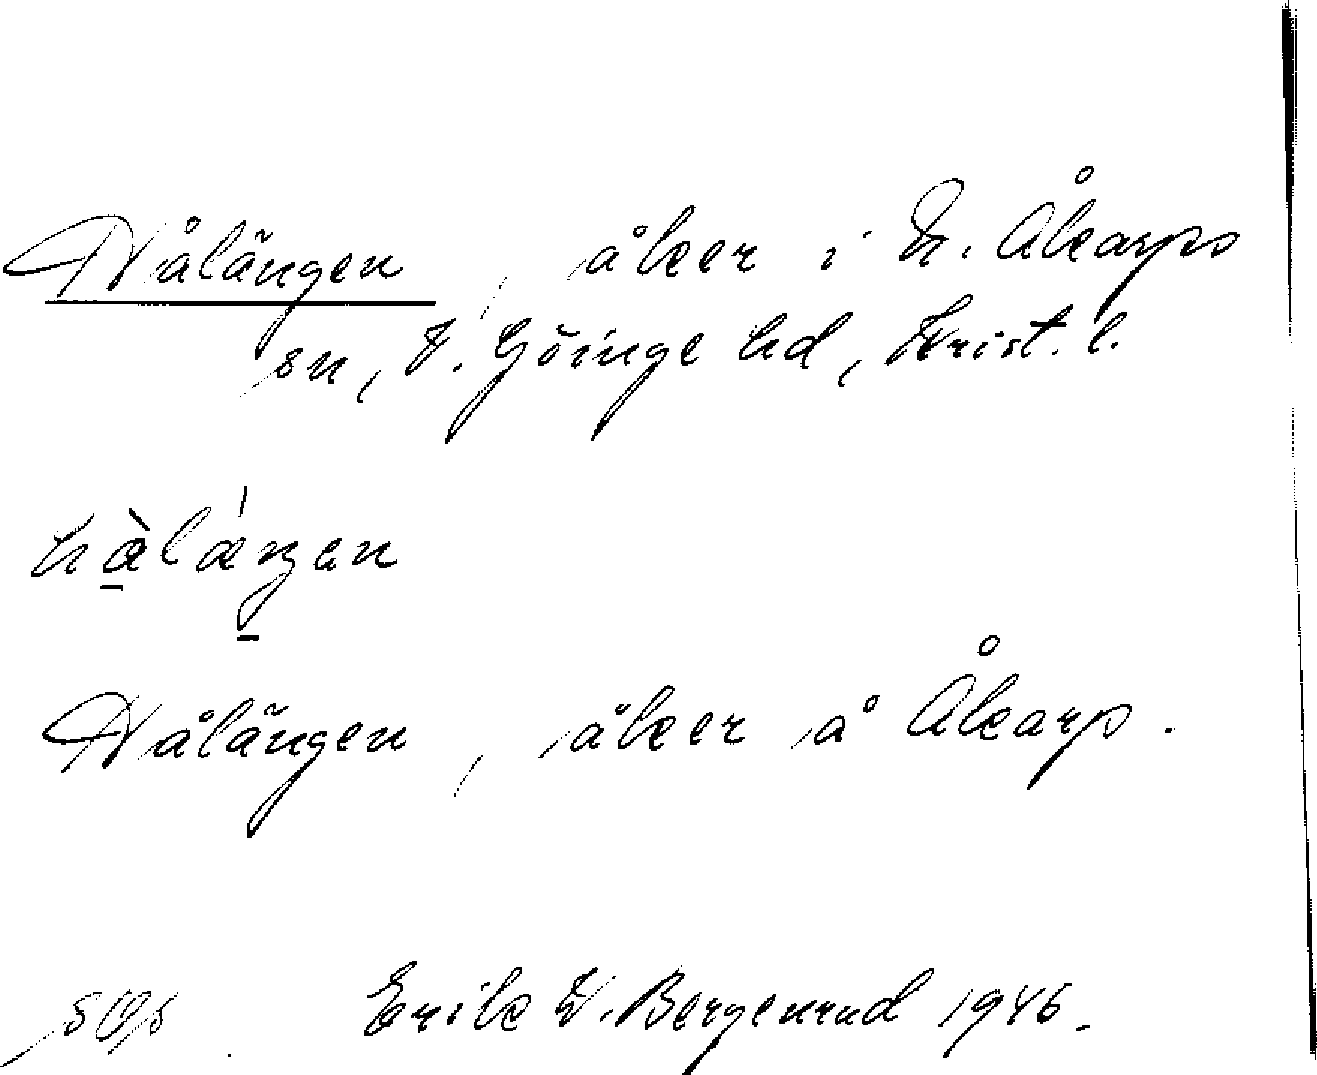 Hålängen, åker i N. Åkarps
sn, V. Göinge hd, Krist. l.
Hålängen, åker å Åkarp.
Erik Bergenrud 1946.